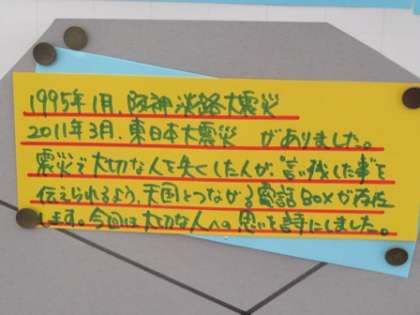 1995年1月、阪神淡路大震災
2011年3月、東日本大震災 がありました。
震災で大切な人を失くした人が、"言い残した事"を
伝えられるよう、天国とつながる電話BOXが存在
します。今回は大切な人への思いを詩にしました。